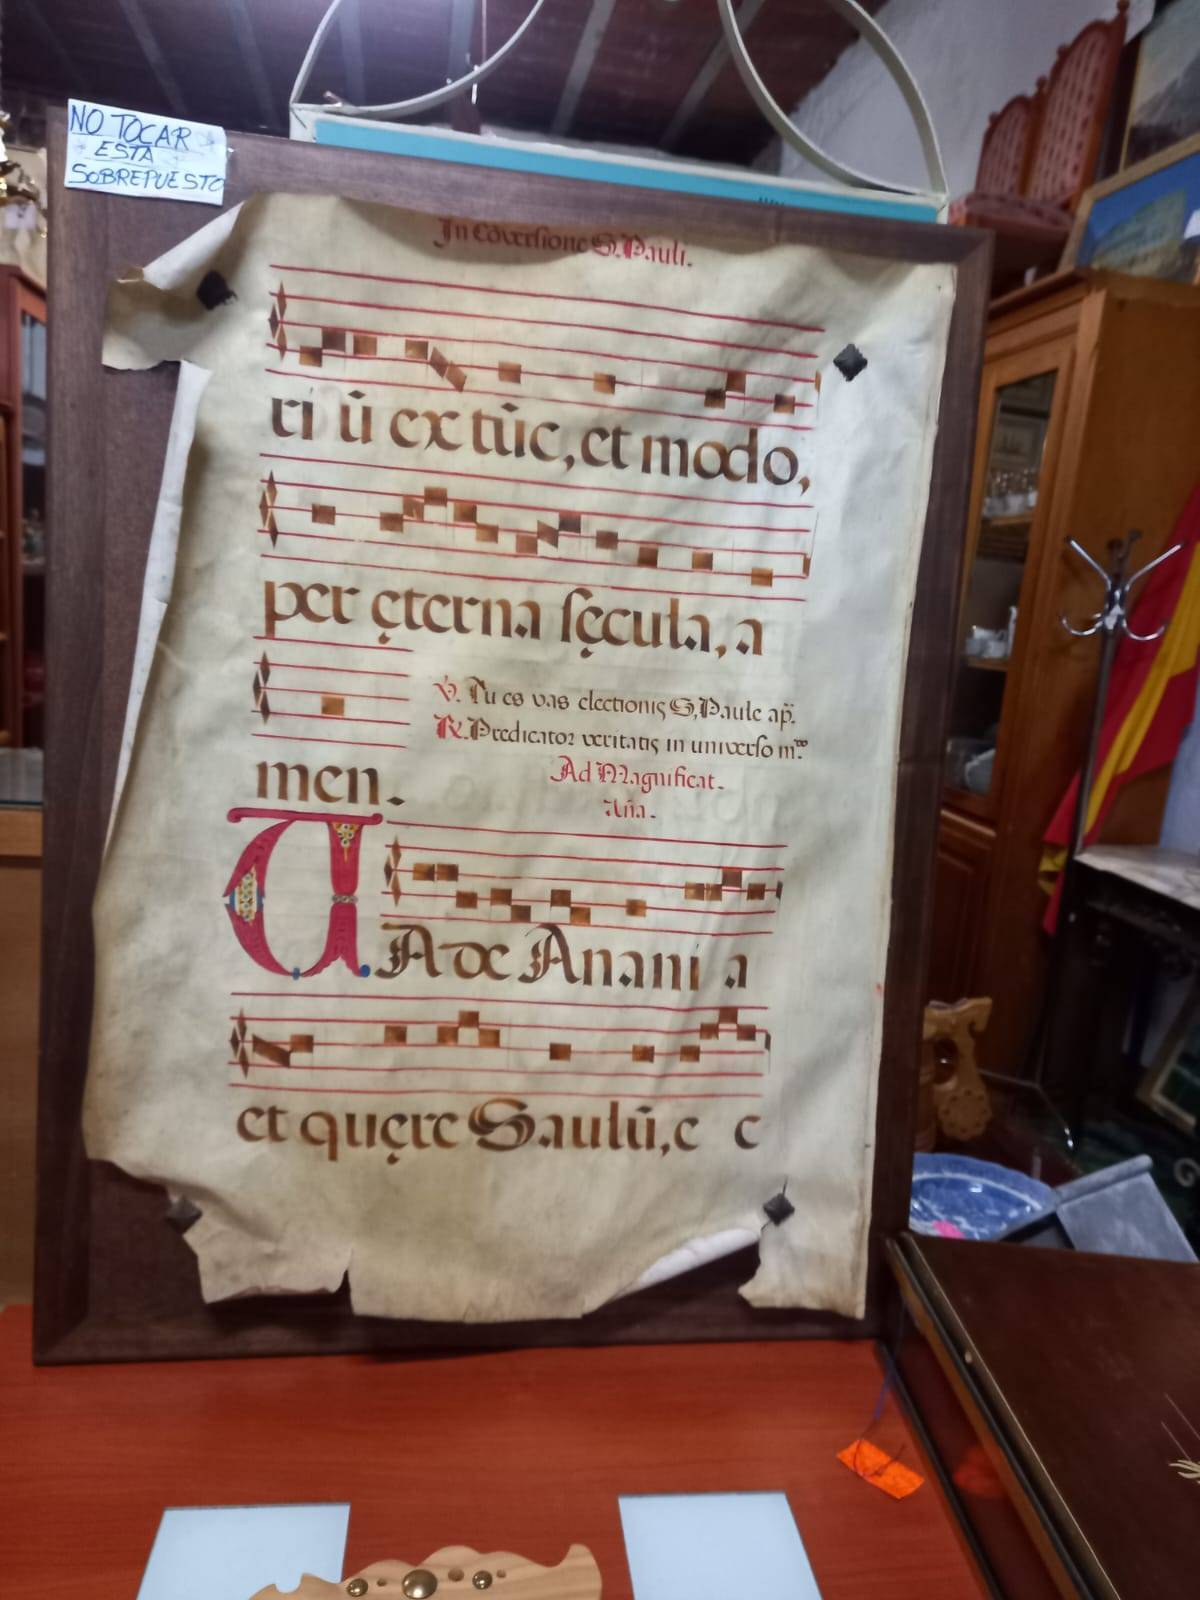 NO TOCAR
ESTA
SOBREPUESTO
In Cõversione S. Pauli.
ri ũ ex tũc, et modo,
per ęterna ſęcula, a
℣. Tu es vas electionis S, Paule ap̃.
℟. Predicator veritatis in universo m.ᵈᵒ
men.
Ad Magnificat.
Aña.
VA de Anani a
et quęre Saulũ, e c